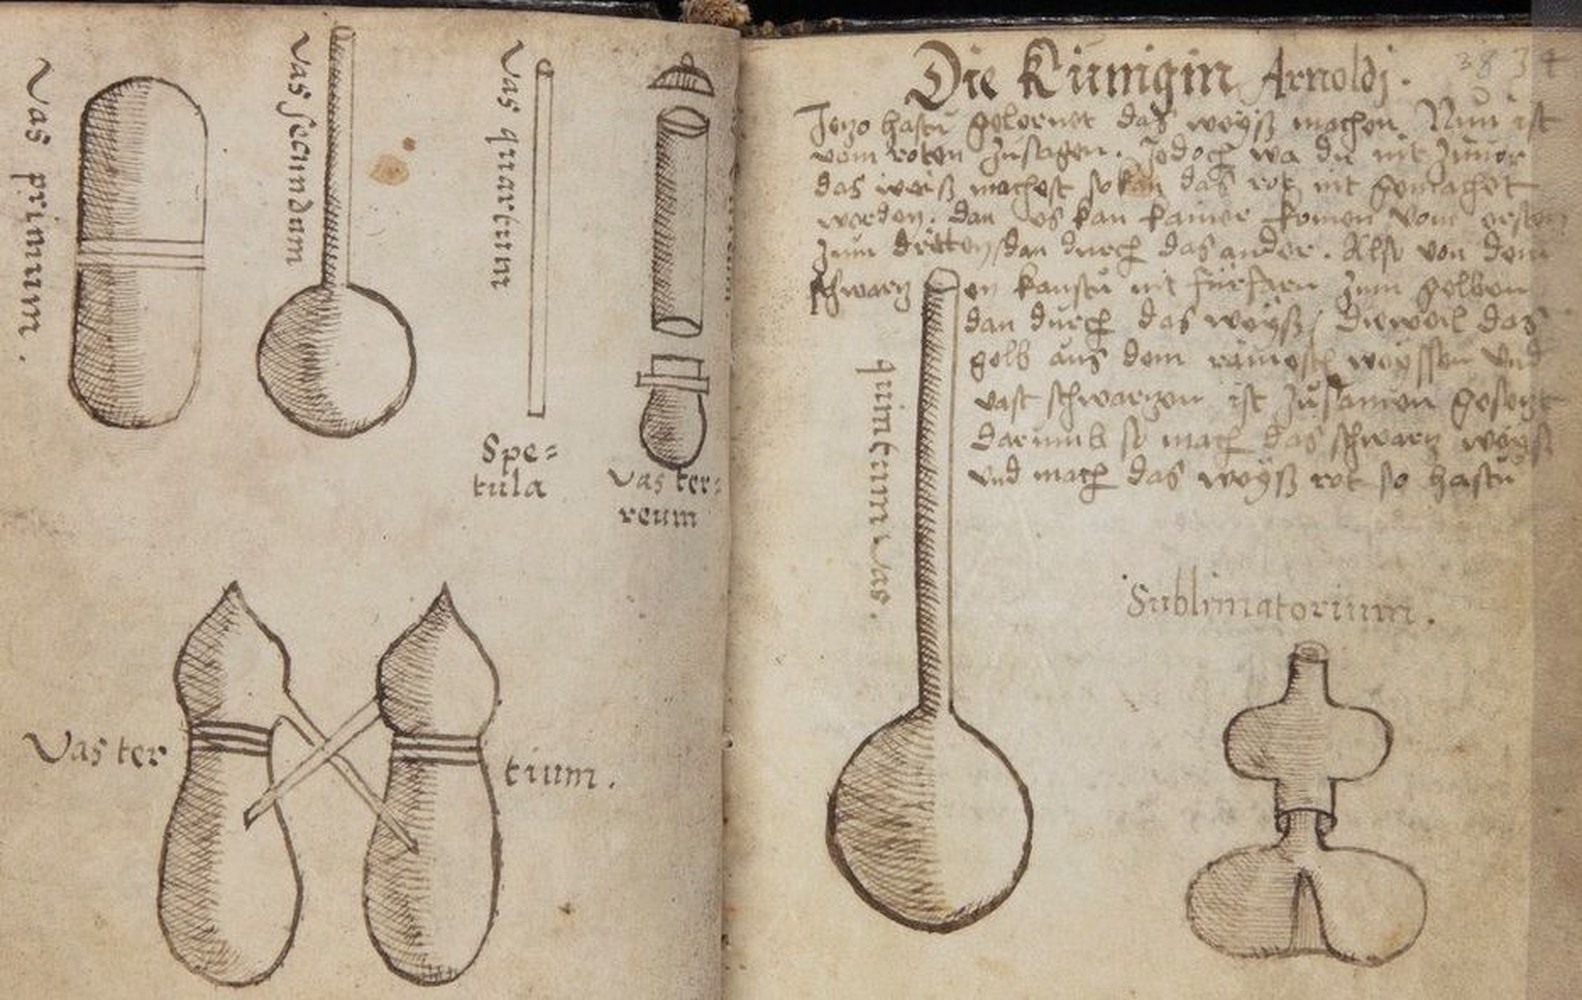 Vas primum.
Vas secundum
Vas quartum
Spe=
tula
Vas ter=
reum
Vas ter
tium.
38 34
Die Künigin Arnoldj.
Jetzo hastu gelernet das weyß machen. Nun ist
vom roten zusagen. Jedoch wa du nit zuuor
das weiß machest so kan das rot nit gemachet
werden. dan es kan kainer komen vom ersten
zum dritten / dan durch das ander. Also von dem
schwartzen kanstu nit fürfarn zum gelben
dan durch das weyß / dieweil das
gelb aus dem weyssen und
vast schwartzen ist zusamen gesetzt
darumb so mach das schwartz weyß
und mach das weyß rot so hastu
quintum vas.
Sublimatorium.